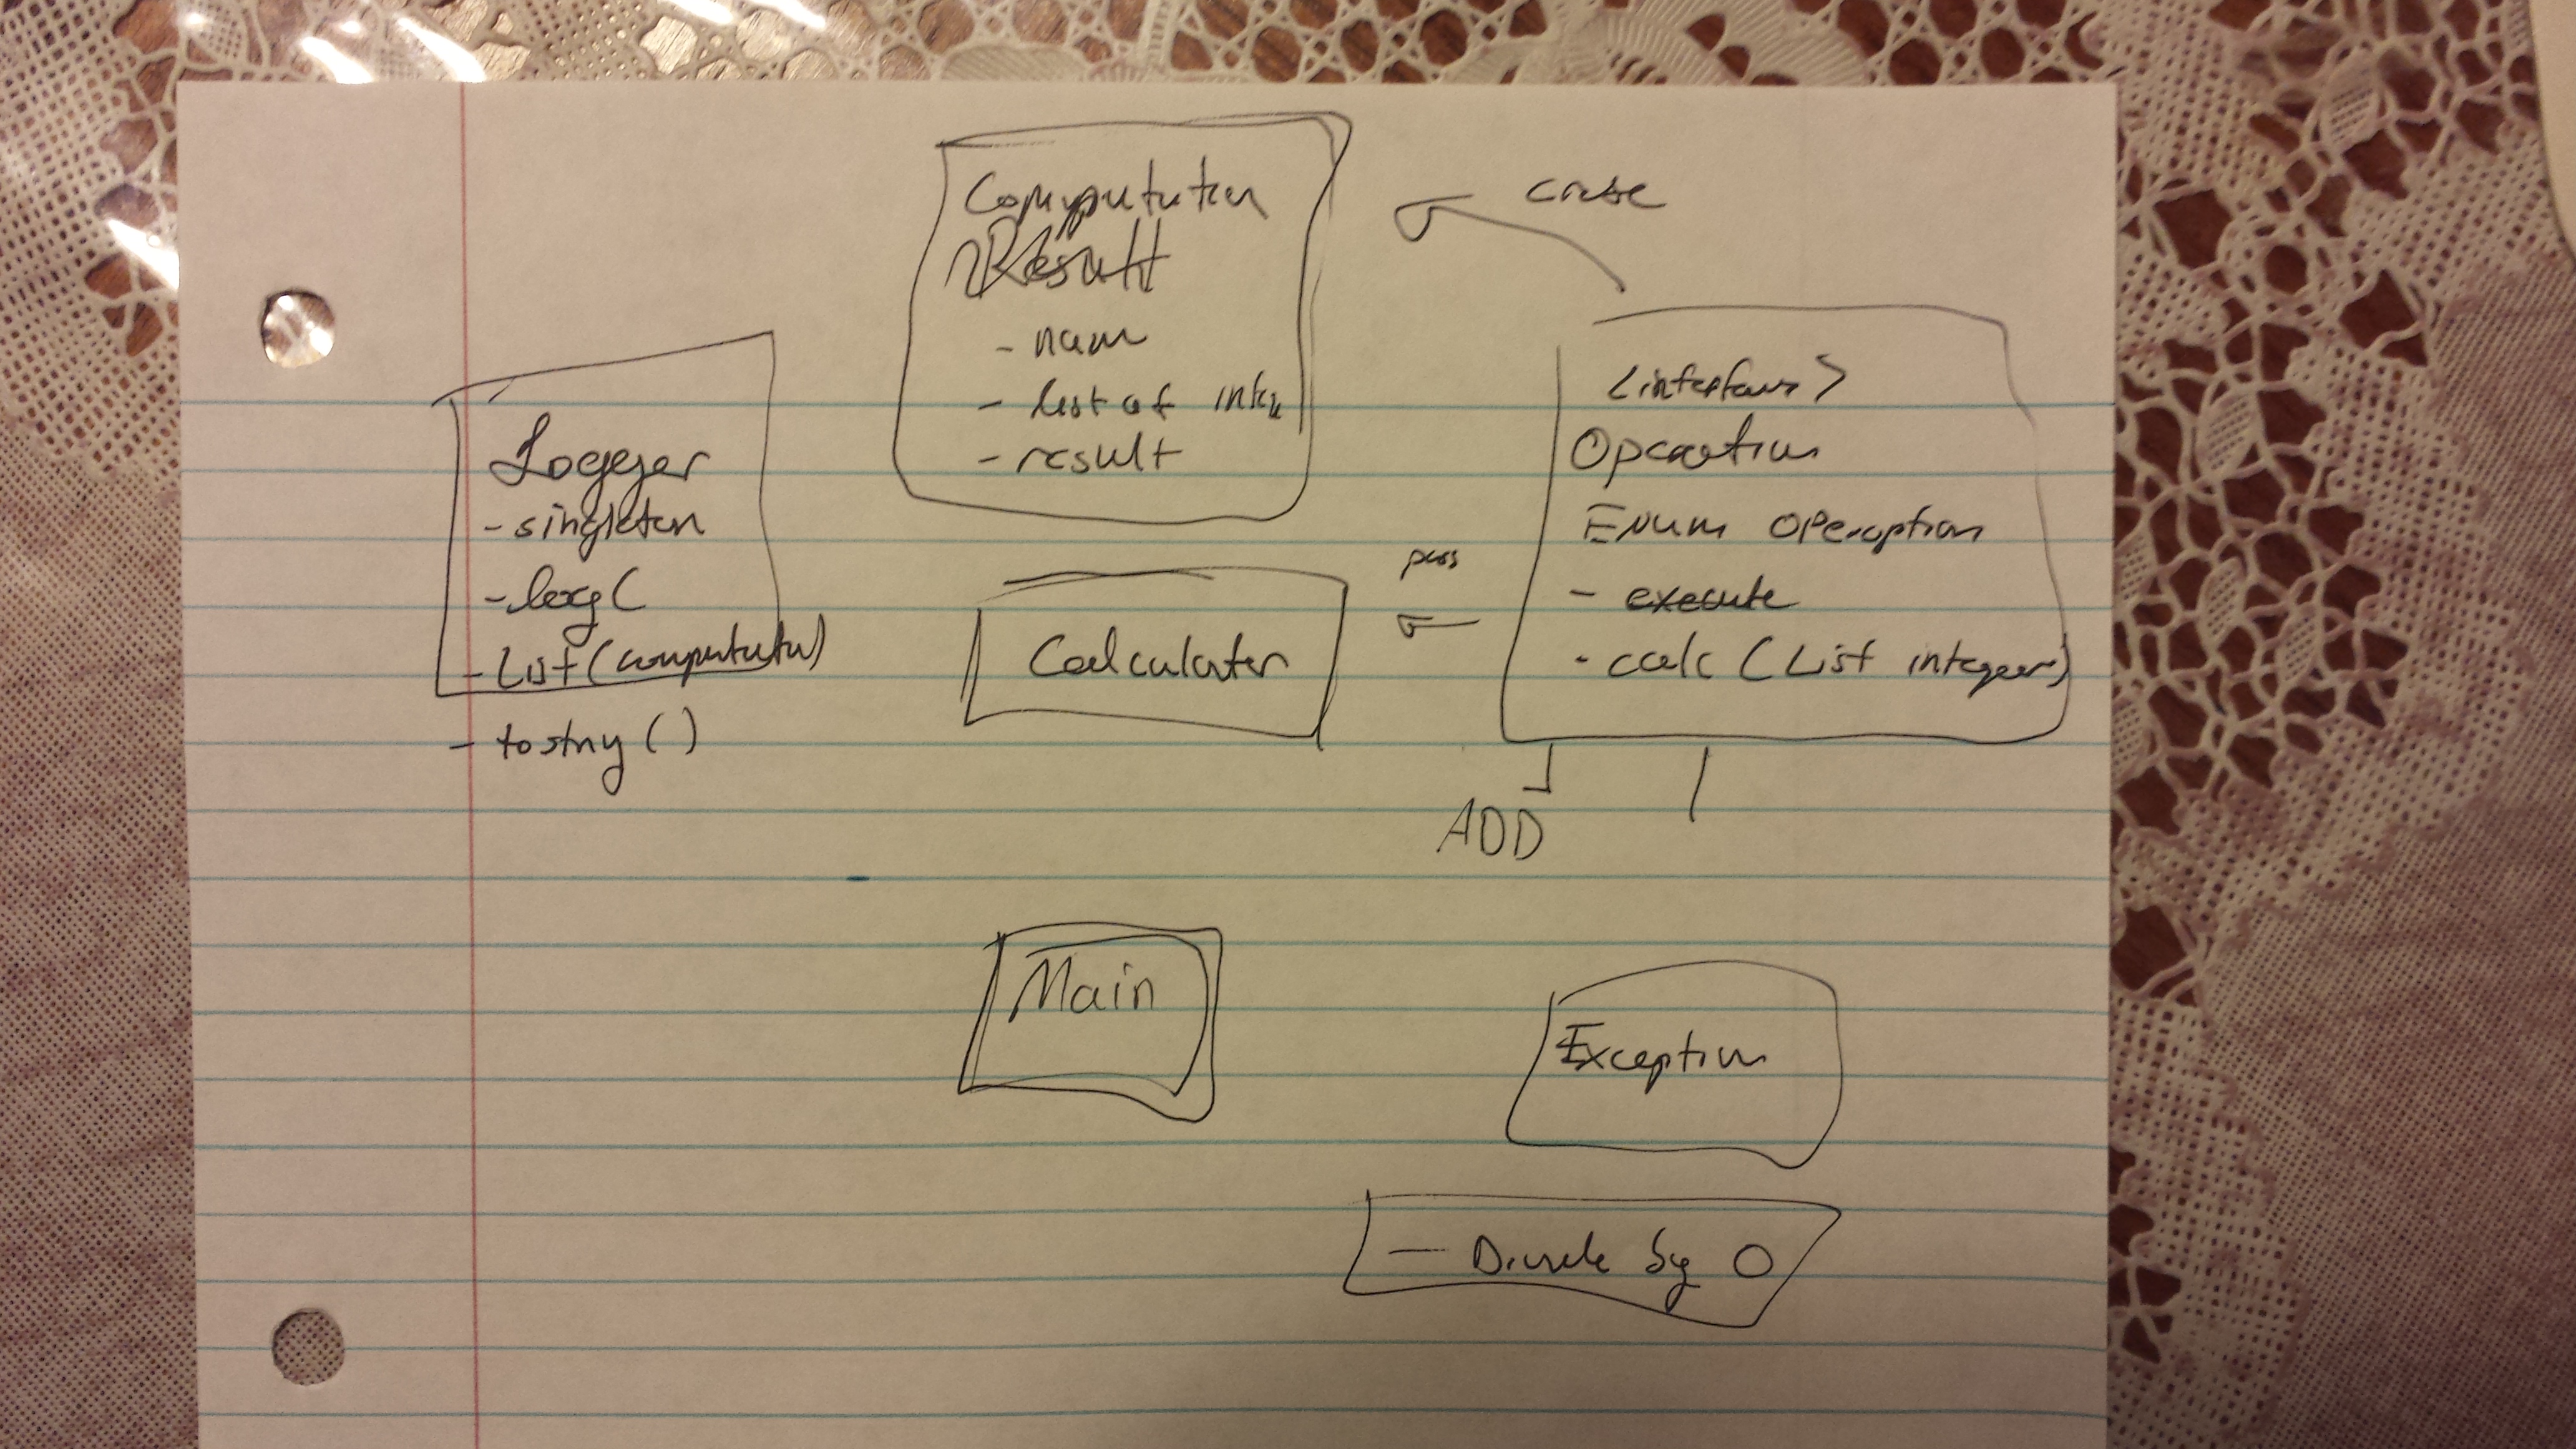 Computation
Result
- name
- list of inte
- result
create
Logger
- singleton
- log(
- List(computation)
- tostring()
<interface>
Operation
Enum operation
- execute
- calc (List integer)
pass
Calculator
ADD
Main
Exception
- Divide by 0